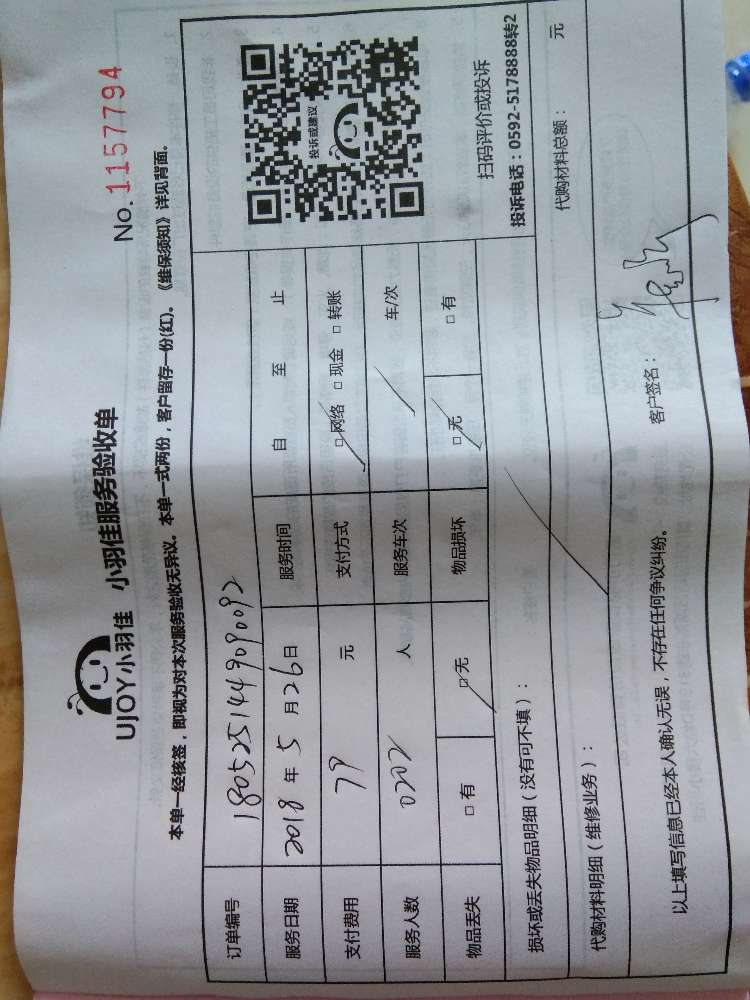 UJOY小羽佳 小羽佳服务验收单 No. 1157794
本单一经核签，即视为对本次服务验收无异议。本单一式两份，客户留存一份(红)。《维保须知》详见背面。
订单编号 1805251449090092
服务日期 2018 年 5 月 26 日 服务时间 自 至 止
支付费用 79 元 支付方式 □网络 □现金 □转账
服务人数 0202 人 服务车次 车/次
物品丢失 □有 □无 物品损坏 □无 □有
投诉或建议
扫码评价或投诉
投诉电话：0592-5178888转2
损坏或丢失物品明细（没有可不填）：
代购材料明细（维修业务）： 代购材料总额： 元
以上填写信息已经本人确认无误，不存在任何争议纠纷。 客户签名：